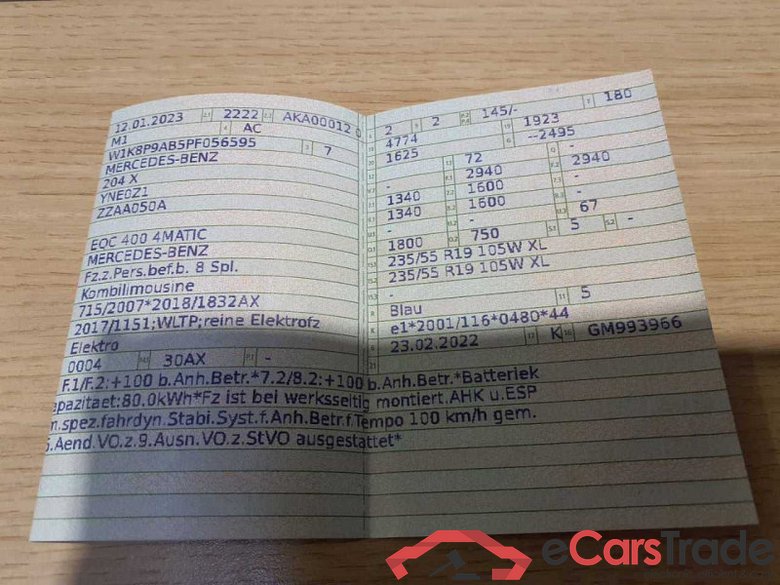 12.01.2023 2222 AKA00012 0
M1 AC
W1K8P9AB5PF056595 7
MERCEDES-BENZ
204 X
YNE0Z1
ZZAA050A
EQC 400 4MATIC
MERCEDES-BENZ
Fz.z.Pers.bef.b. 8 Spl.
Kombilimousine
715/2007*2018/1832AX
2017/1151;WLTP;reine Elektrofz
Elektro
0004 30AX -
2 2 145/- 180
4774 1923
1625 --2495
- 72 -
- 2940 2940
1340 1600 -
1340 1600 -
- - 67
1800 750 5 -
235/55 R19 105W XL
235/55 R19 105W XL
-
Blau 5
e1*2001/116*0480*44
23.02.2022 K GM993966
F.1/F.2:+100 b.Anh.Betr.*7.2/8.2:+100 b.Anh.Betr.*Batteriek
apazitaet:80.0kWh*Fz ist bei werksseitig montiert.AHK u.ESP
m.spez.fahrdyn.Stabi.Syst.f.Anh.Betr.f.Tempo 100 km/h gem.
.Aend.VO.z.9.Ausn.VO.z.StVO ausgestattet*
eCarsTrade